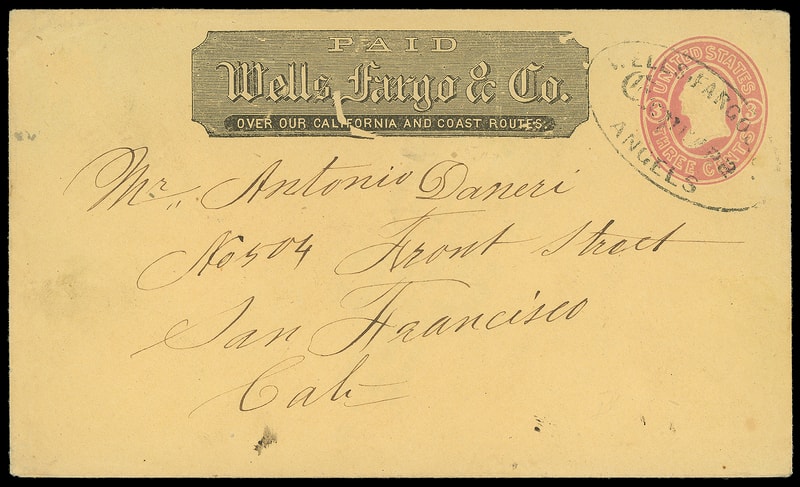 PAID
Wells, Fargo & Co.
OVER OUR CALIFORNIA AND COAST ROUTES.
UNITED STATES
THREE CENTS
WELLS, FARGO &
ANGELS
Mr, Antonio Daneri
No 504 Front Street
San Francisco
Cal